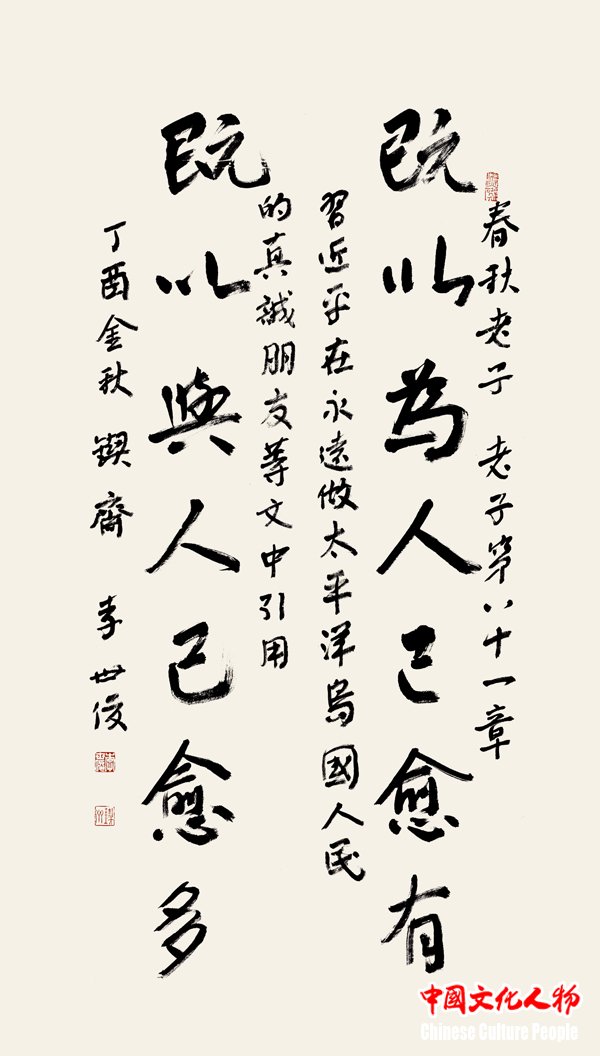 春秋老子 老子第八十一章
既以為人己愈有
習近平在永遠做太平洋島國人民
的真誠朋友等文中引用
既以與人己愈多
丁酉金秋 鍥齋 李世俊
中國文化人物
Chinese Culture People